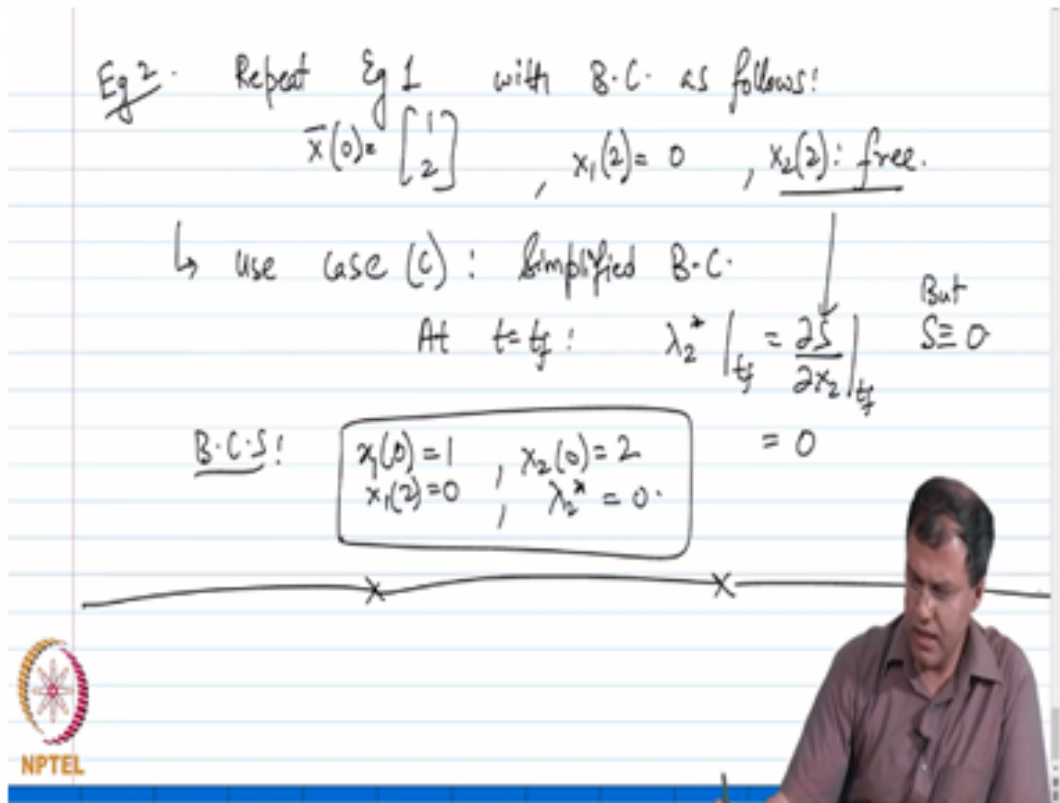 Eg 2. Repeat Eg 1 with B.C. as follows:
x̄(0) = [1 2], x₁(2) = 0, x₂(2): free.
↳ use case (c): Simplified B.C.
At t = t_f: λ₂*|_{t_f} = ∂S/∂x₂|_{t_f} But S ≡ 0
= 0
B.C.S: x₁(0) = 1, x₂(0) = 2
x₁(2) = 0, λ₂* = 0.
NPTEL